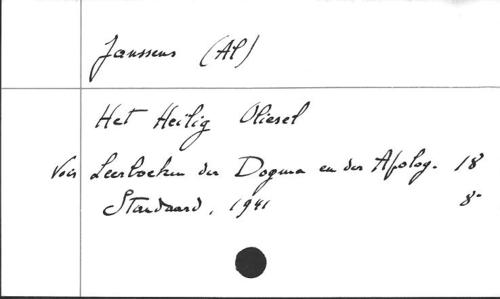 Janssens (Al)
Het Heilig Oliesel
Voir Leerboeken der Dogma en der Apolog. 18
Standaard, 1941 8°